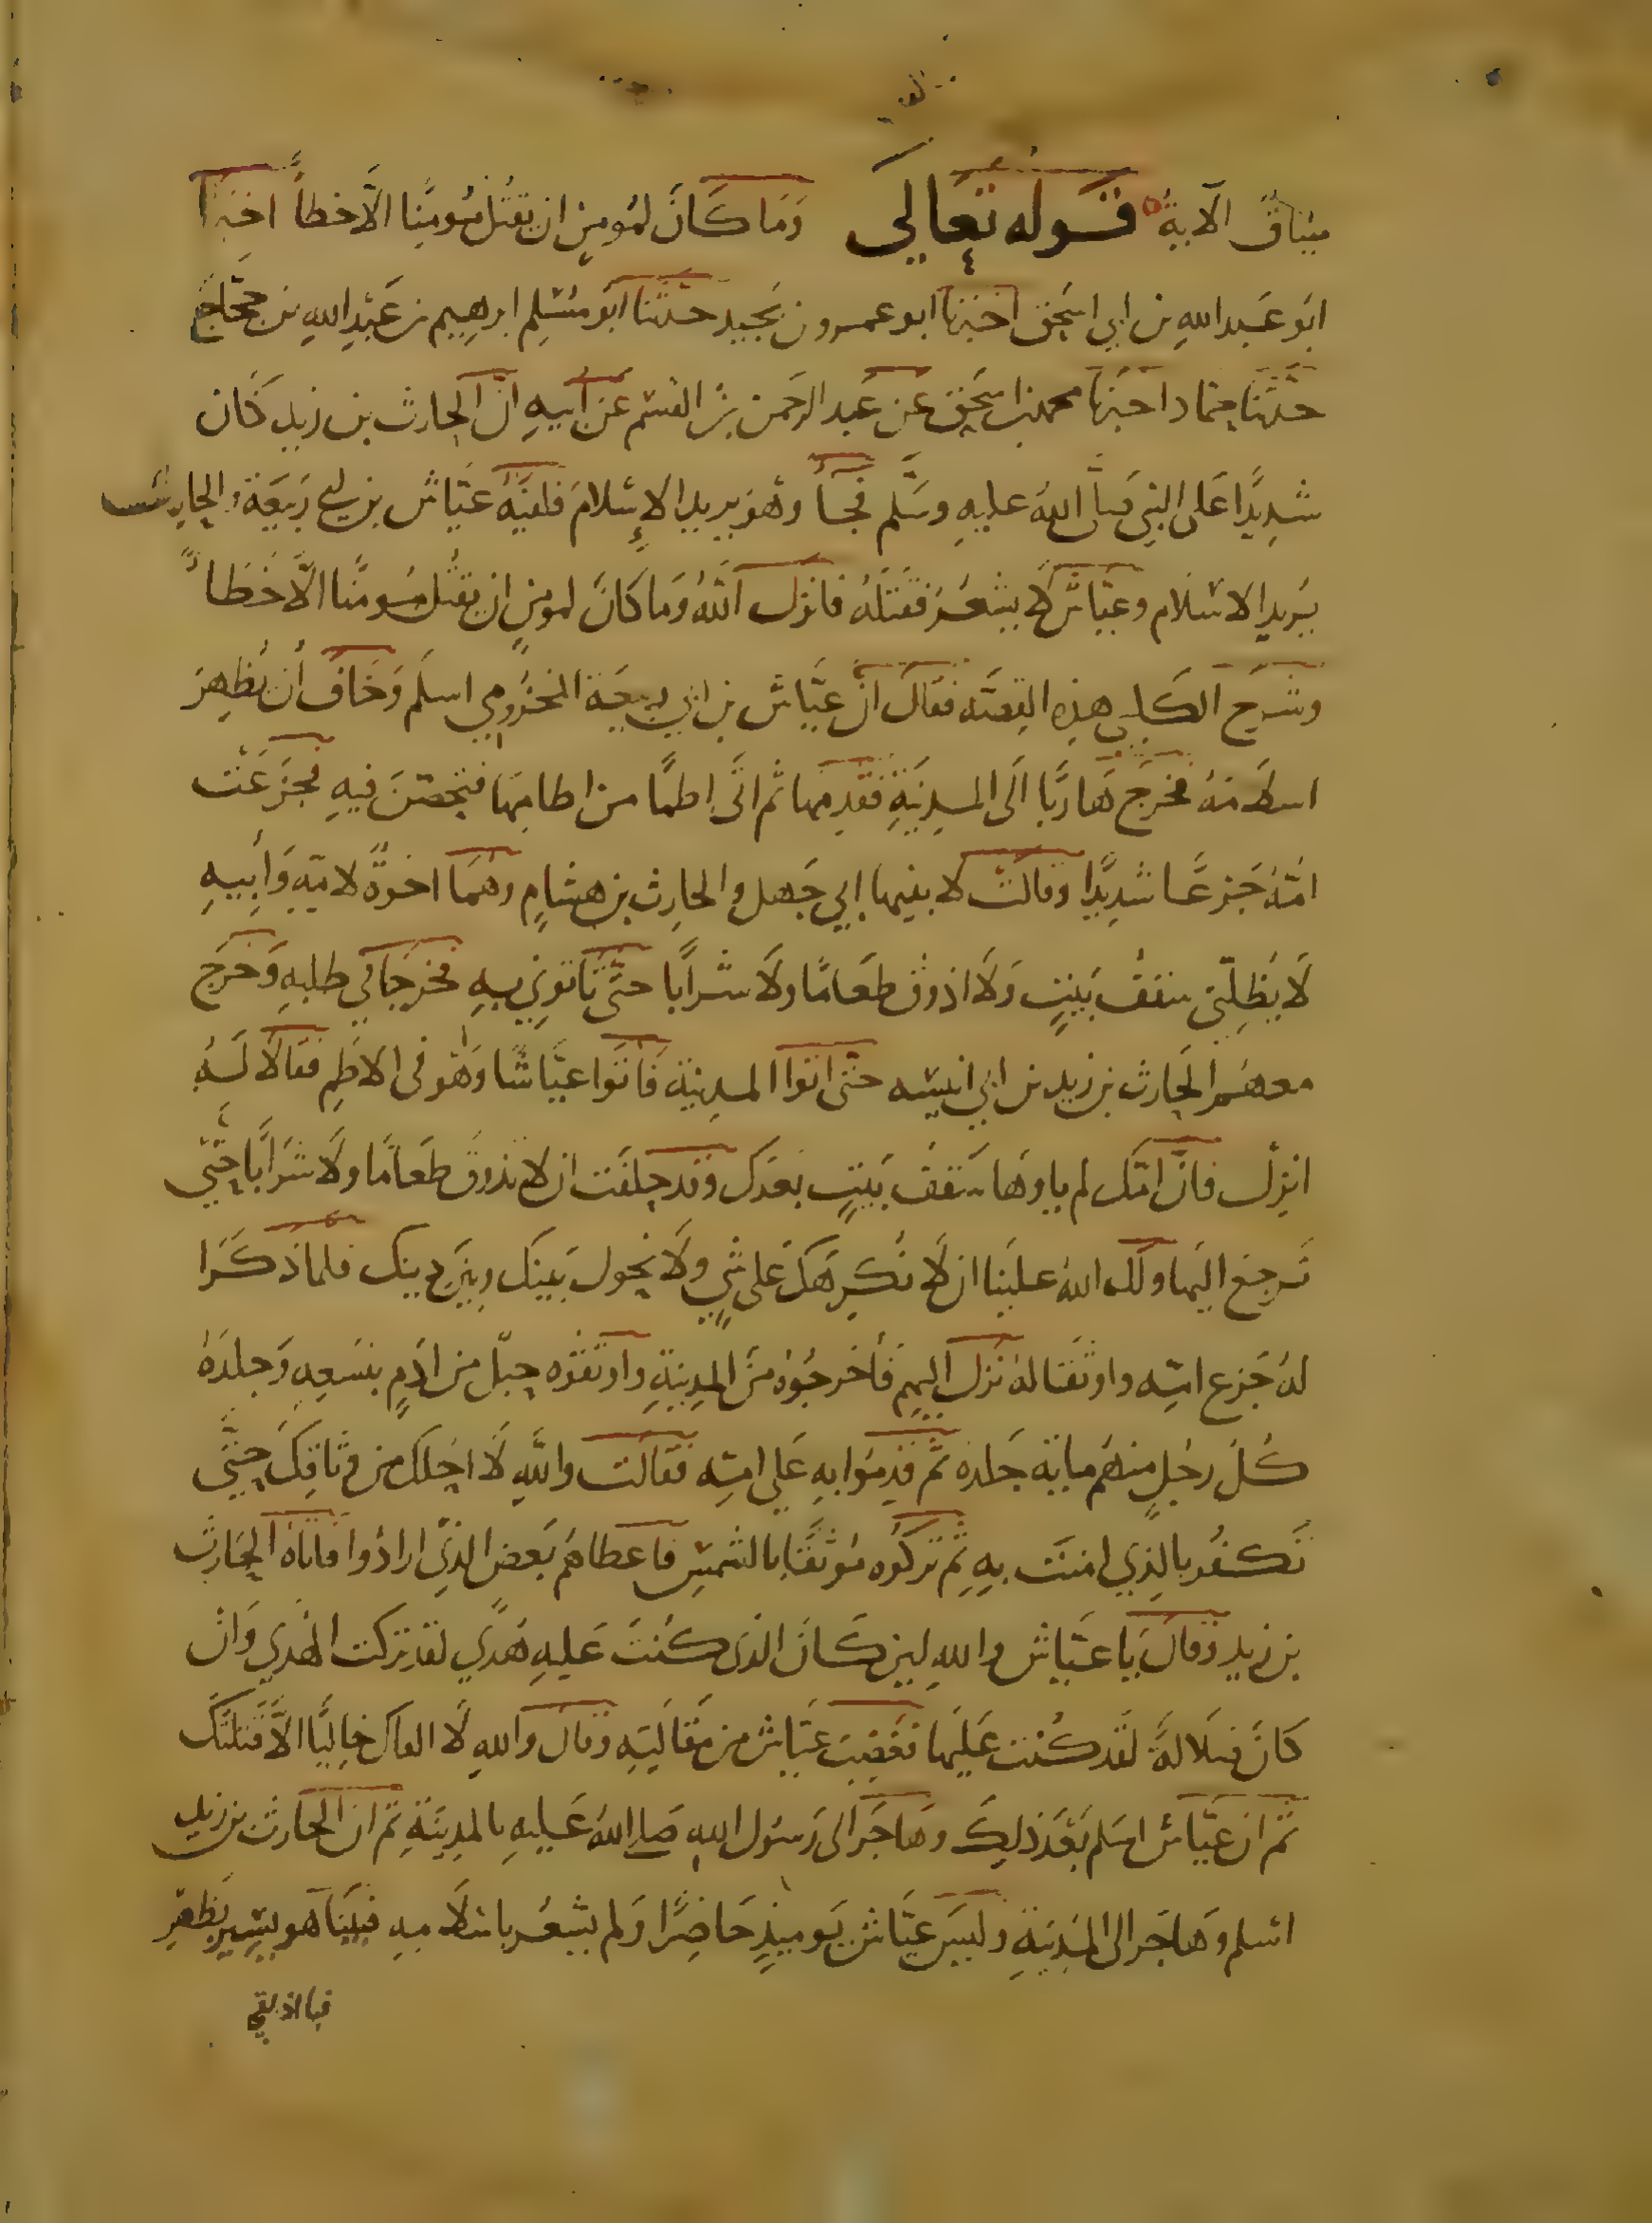 ميثاق الآية قوله تعالى وَمَا كَانَ لمُومنٍ ان يَقتُل مُومِنًا الَّا خطأً اخبرنا
ابو عَبد الله بن ابي اسحق اخبرنا ابو عمرو بن نجيد حدثنا ابو مسْلِم ابرهيم بن عَبْدِ اللهِ بن حجَّاج
حدَّثنَا حماد اخبرَنَا محمد بن اسحَق عَن عَبد الرحمن بن القسم عَن أبيهِ انَّ الحارث بن زيد كَان
شدِيدًا عَلى النبي صلى اللهُ عليهِ وسَلَّم فجَآ وهُو يريد الإسْلامَ فلقيَهُ عَيَّاش بن ابي ربيعَة والحارث
يُريد الاسْلَام وعيّاش لا يشعُرُ فقَتَلَهُ فانزل اللهُ وَمَا كَانَ لمومنٍ ان يقتُل مُومنًا الَّا خَطَأً
وشرَح الكلبي هذِه القصَّه فقالَ انَّ عيَّاش بن ابي ربيعَة المخزُومي اسلَم وَخَافَ أن يُظهِرَ
اسلامَهُ فخرَج هَاربًا الَى المدينَةِ فقَدِمَها ثم اتَى اطمًا من اطامِهَا فتحصّنَ فيهِ فجَزعَتْ
امّهُ جَزعًا شدِيدًا وقالتْ لابنيها ابي جَهل والحارِث بن هشامٍ وهُمَا اخوةٌ لامّهِ وَأبيهِ
لَا يُظِلّني سَقفُ بَيتٍ وَلَا اذوقُ طعَامًا ولَا شرابًا حتَّى تَاتوني بهِ فخرجَا في طلبهِ وَخرَج
معهُم الحَارث بن زيد بن ابي انيسه حتى اتوا المدِينة فَاتَوا عيَّاشًا وَهُو فى الاطِم فقالَا لَهُ
انزِل فانَّ امّك لم ياوهَا سَقفُ بَيتٍ بعدَك وقد حلفَت ان لا تذوقَ طعَامًا ولَا شرَابًا حتّى
تَرجعَ اليها ولك اللهُ علينا ان لَا نُكرهَكَ عَلى شَيءٍ ولَا نحول بَينَك وبَينَ دينك فلما ذكرَا
لهُ جَزع امّه واوثَقا لهُ نَزل اليهِم فأخرجُوهُ منَ المدِينةِ واوثَقوه حِبْل من ادَمٍ بنسَعِهِ وَجلدَهُ
كُل رجُلٍ منهُم مايَة جَلده ثم قدِمُوا بهِ عَلى امّه فقالت واللهِ لَا احلك من وثَاقِكَ حتَّى
تكفُر بالذِي امنتَ بهِ ثم تركُوه مُوثَقًا بالشمسِ فاعطاهُم بَعض الذِي ارادُوا فاتَاهُ الحَارث
بن زيد وقالَ يَا عَيّاش واللهِ لين كَانَ الذى كُنتَ عَليهِ هُدًي لقد تركت الهُدي وَان
كَانَ ضلَالةً لَقد كُنت عَليهَا فغَضِبَ عيَّاش من مَقالتِهِ وقالَ واللهِ لَا القاك خاليًا الَّا قتلتُك
ثم ان عيَّاش اسَلم بَعدَ ذلِكَ وهَاجَر الى رَسُول اللهِ صَلى اللهُ عَليهِ بالمدِينَةِ ثم ان الحَارث بن زيد
اسلم وَهاجَر الى المدِينَةِ وليسَ عيَّاش يَوميذٍ حَاضِرًا وَلم يشعُر باسلَامهِ فبَينَا هو يسِير بظَهرِ
قبا اذ لقي